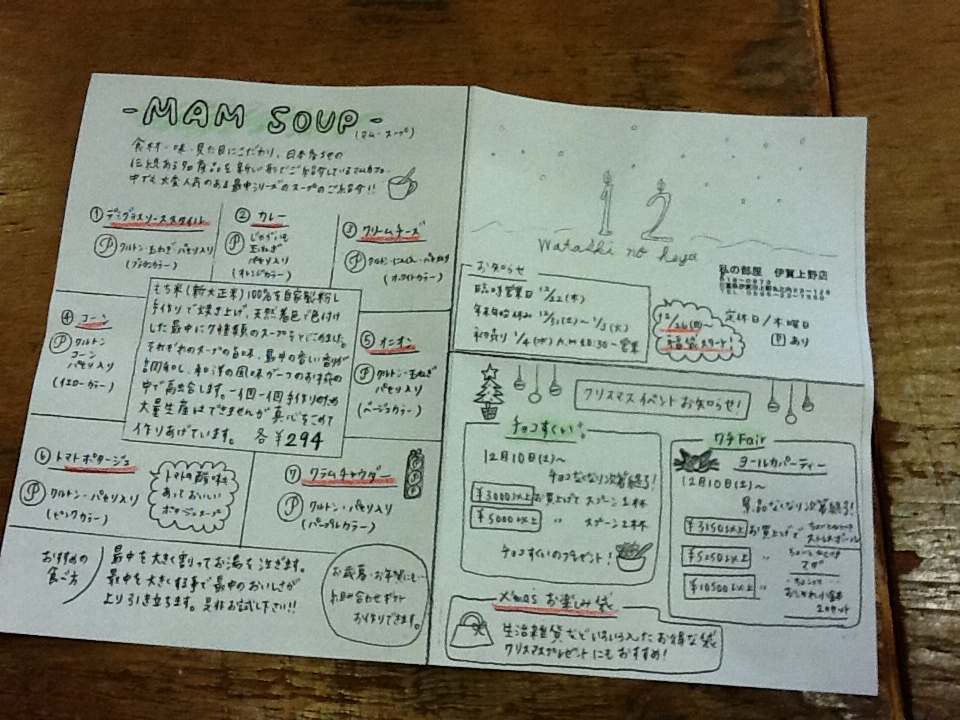 -MAM SOUP-
(マム・スープ)
食材・味・見た目にこだわり、日本各地の
伝統ある名産品を新しい形でご紹介しているマムカフェ。
中でも大変人気のある最中シリーズのスープのご紹介!!
① デミグラスソーススタイル
Ⓟ クルトン・玉ねぎ・パセリ入り
(ブラウンカラー)
② カレー
Ⓟ じゃがいも
玉ねぎ
パセリ入り
(オレンジカラー)
③ クリームチーズ
Ⓟ クルトン・にんじん・パセリ入り
(ホワイトカラー)
④ コーン
Ⓟ クルトン
コーン
パセリ入り
(イエローカラー)
もち米(新大正米)100%を自家製粉し
手作りで焼き上げ、天然着色で色付け
した最中に7種類のスープをとじこめました。
それぞれのスープの旨味、最中の香い香りが
調和し、和洋の風味が一つのお椀の
中で融合します。一個一個手作りのため
大量生産はできませんが真心をこめて
作りあげています。 各¥294
⑤ オニオン
Ⓟ クルトン・玉ねぎ
パセリ入り
(ベージュカラー)
⑥ トマトポタージュ
Ⓟ クルトン・パセリ入り
(ピンクカラー)
トマトの酸味も
あっておいしい
ポタージュスープ
⑦ クラムチャウダー
Ⓟ クルトン・パセリ入り
(パープルカラー)
おすすめの
食べ方
最中を大きく割ってお湯を注ぎます。
最中を大きくする事で最中のおいしさが
より引き立ちます。是非お試し下さい!!
お歳暮・お年賀にも…
お詰め合わせギフト
お作りできます。
12
Watashi no heya
私の部屋 伊賀上野店
お知らせ
臨時営業日 12/22(木)
年末年始休み 12/31(土)〜1/3(火)
初売り 1/4(水)A.M10:30〜営業
12/26(月)〜
福袋スタート!
定休日/木曜日
Ⓟあり
クリスマスイベントお知らせ!
チョコすくい。
12月10日(土)〜
チョコなくなり次第終了!
¥3000以上お買上げで スプーン1杯
¥5000以上 〃 スプーン2杯
チョコすくいのプレゼント!
クチFair
ヨールカパーティー
12月10日(土)〜
景品なくなり次第終了!
¥3150以上 お買上げで
¥5250以上 〃
¥10500以上 〃
2コセット
X'mas お楽しみ袋
生活雑貨などいろいろ入ったお得な袋
クリスマスプレゼントにもおすすめ!